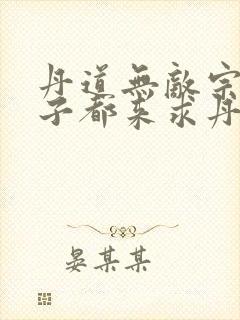 丹道無敵宗
子都來求丹
晏某某